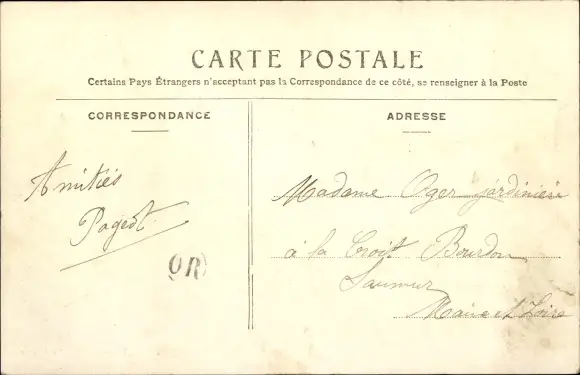 CARTE POSTALE
Certains Pays Étrangers n'acceptant pas la Correspondance de ce côté, se renseigner à la Poste
CORRESPONDANCE
ADRESSE
Amitiés
Pageot
OR
Madame Oger jardinière
à la Croix Bourdon
Saumur
Maine et Loire